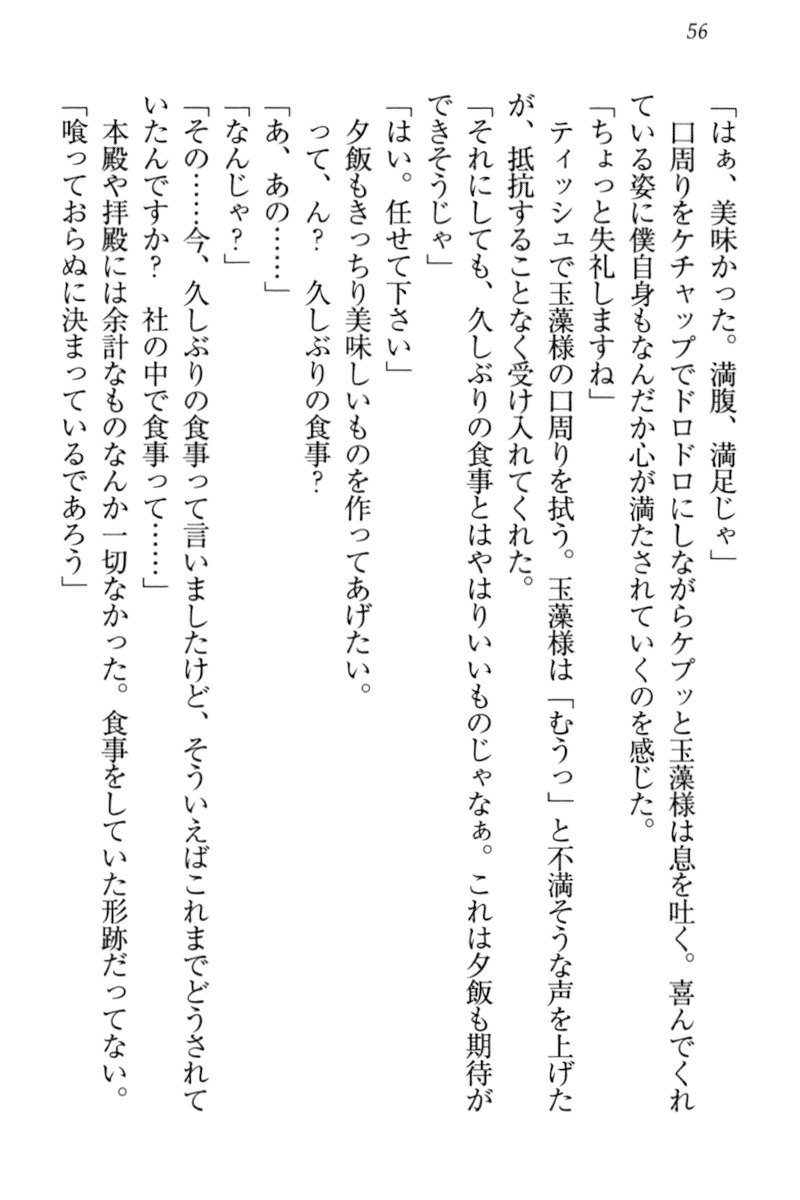 56
「はぁ、美味かった。満腹、満足じゃ」
　口周りをケチャップでドロドロにしながらケプッと玉藻様は息を吐く。喜んでくれ
ている姿に僕自身もなんだか心が満たされていくのを感じた。
「ちょっと失礼しますね」
　ティッシュで玉藻様の口周りを拭う。玉藻様は「むうっ」と不満そうな声を上げた
が、抵抗することなく受け入れてくれた。
「それにしても、久しぶりの食事とはやはりいいものじゃなぁ。これは夕飯も期待が
できそうじゃ」
「はい。任せて下さい」
　夕飯もきっちり美味しいものを作ってあげたい。
　って、ん？　久しぶりの食事？
「あ、あの……」
「なんじゃ？」
「その……今、久しぶりの食事って言いましたけど、そういえばこれまでどうされて
いたんですか？　社の中で食事って……」
　本殿や拝殿には余計なものなんか一切なかった。食事をしていた形跡だってない。
「喰っておらぬに決まっているであろう」